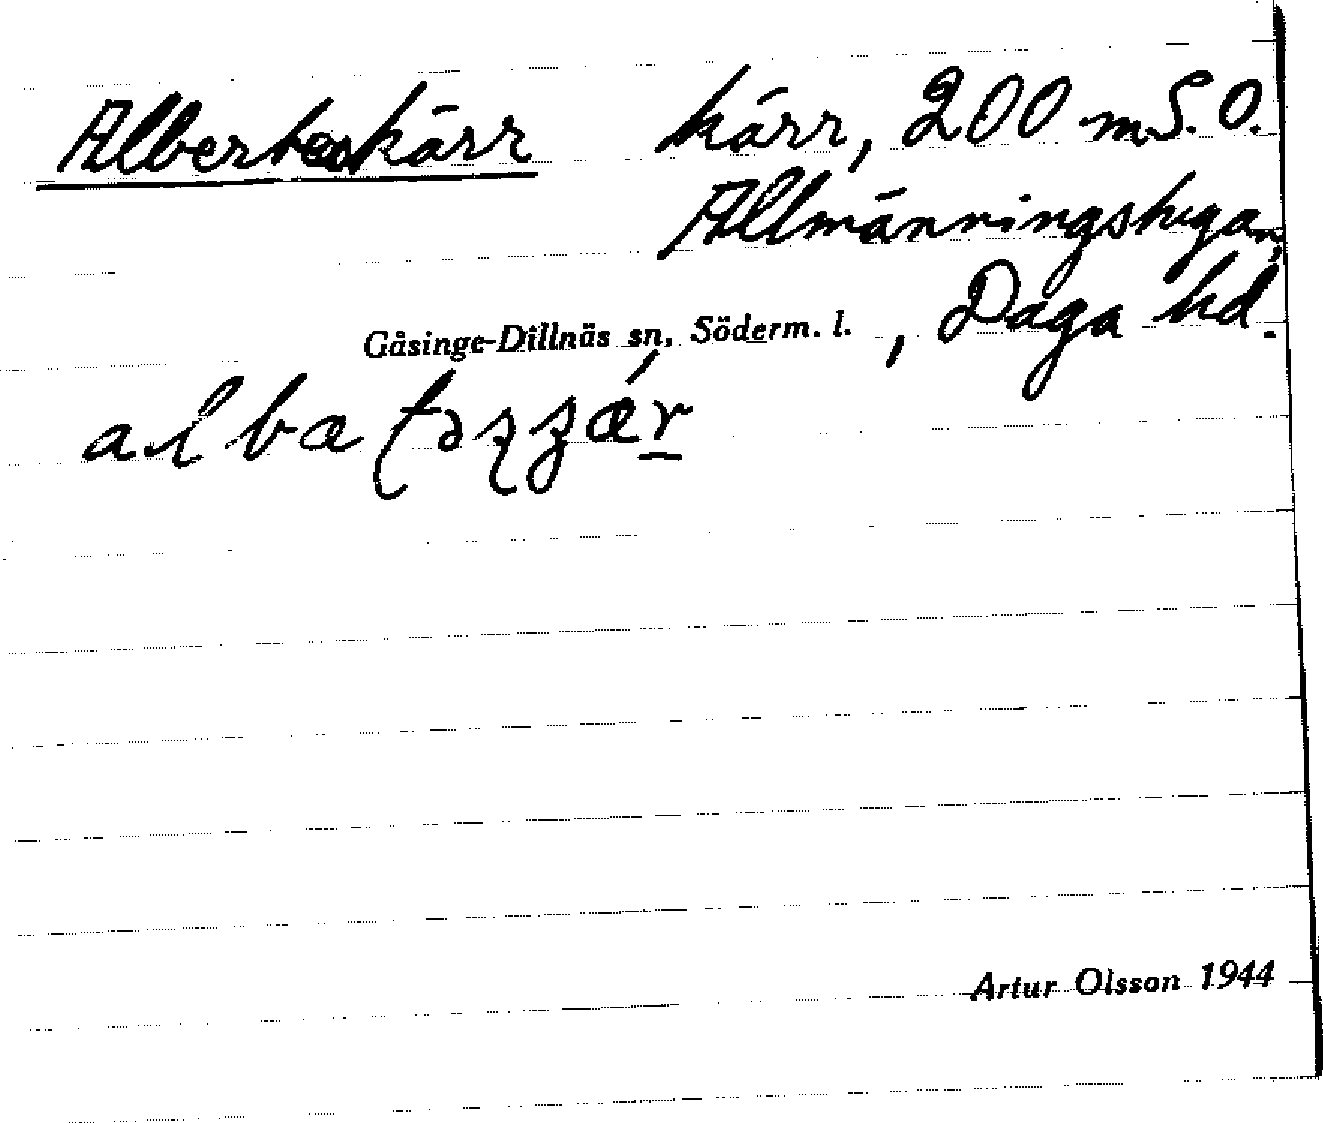 Alberteskärr kärr, 200 m S.O.
Allmänningstugan,
Gåsinge-Dillnäs sn, Söderm. l. , Daga hd.
Artur Olsson 1944